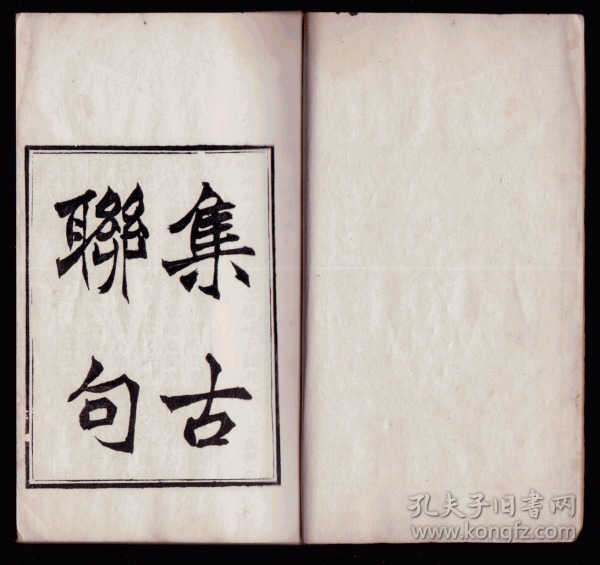 集古
聯句
孔夫子旧书网
www.kongfz.com